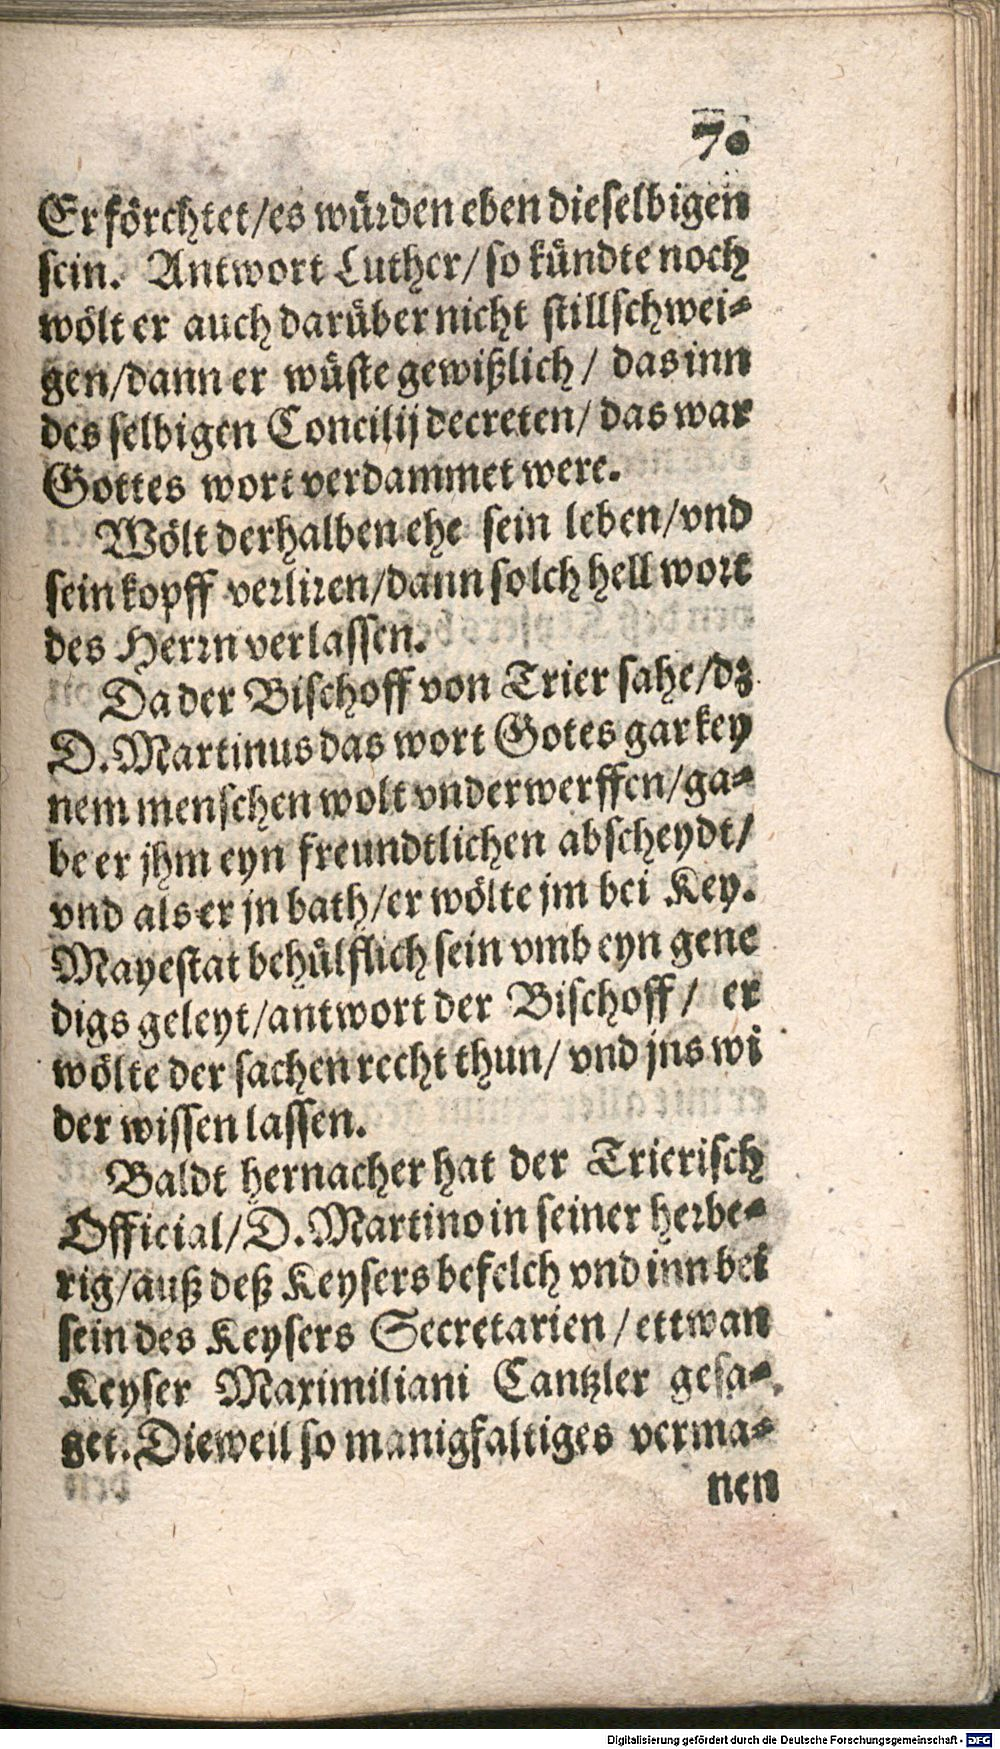 70
Er förchtet/es würden eben dieselbigen
sein. Antwort Luther/ so kündte noch
wölt er auch darüber nicht stillschwei⸗
gen/dann er wüste gewißlich/ das inn
des selbigen Concilij decreten/ das war
Gottes wort verdammet were.
Wölt derhalben ehe sein leben/vnd
sein kopff verliren/dann solch hell wort
des Herrn verlassen.
Da der Bischoff von Trier sahe/dz
D. Martinus das wort Gotes gar key
nem menschen wolt vnderwerffen/ga⸗
be er jhm eyn freundtlichen abscheydt/
vnd als er jn bath/er wölte jm bei Key.
Mayestat behülflich sein vmb eyn gene
digs geleyt/antwort der Bischoff/ er
wölte der sachen recht thun/ vnd jns wi
der wissen lassen.
Baldt hernacher hat der Trierisch
Official/D. Martino in seiner herbe⸗
rig/auß deß Keysers befelch vnd inn bei
sein des Keysers Secretarien/ettwan
Keyser Maximiliani Cantzler gesa⸗
get. Dieweil so manigfaltiges verma⸗
nen
Digitalisierung gefördert durch die Deutsche Forschungsgemeinschaft - DFG